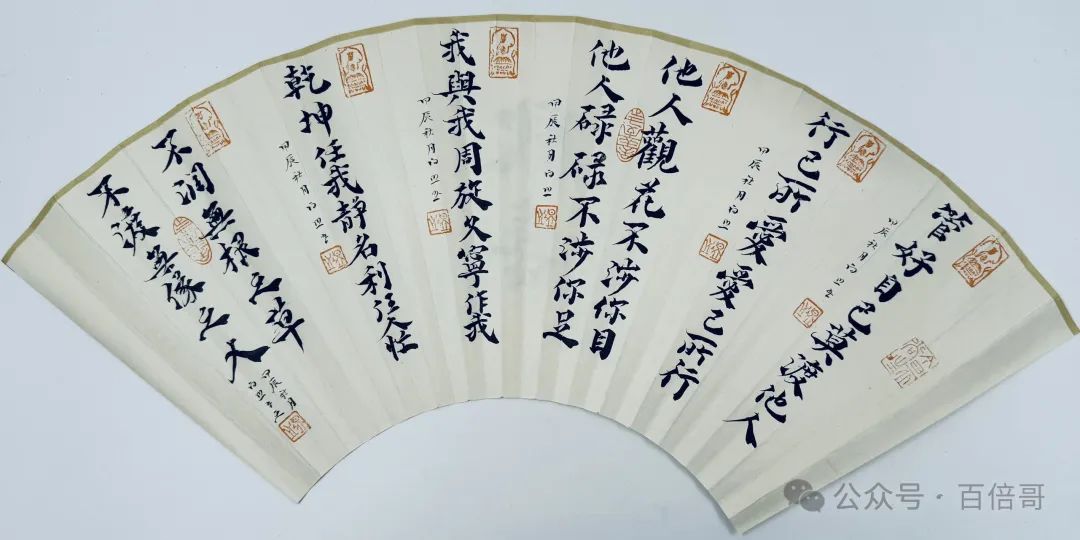 管好自己莫渡他人
甲辰秋月
行己所愛愛己所行
甲辰秋月
他人觀花不涉你目
他人碌碌不涉你足
甲辰秋月
我與我周旋久寧作我
甲辰秋月
乾坤任我静名利任人忙
甲辰秋月
不润無根之草
不渡無缘之人
甲辰秋月
公众号·百倍哥